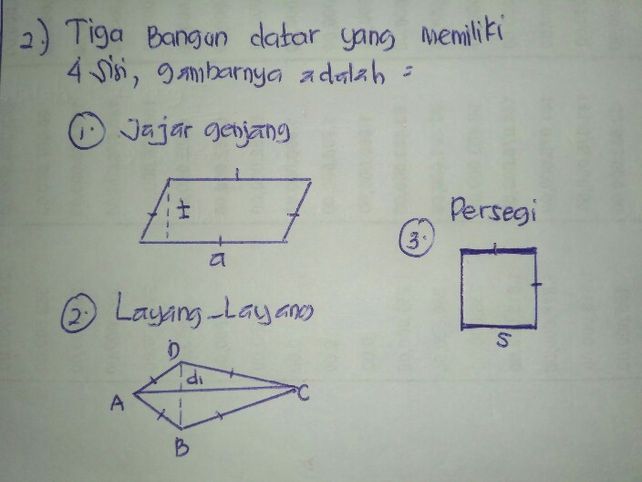 2.) Tiga Bangun datar yang memiliki
4 sisi, gambarnya adalah =
1. Jajar genjang
t
a
2. Layang-Layang
D
d1
A
C
B
3. Persegi
S